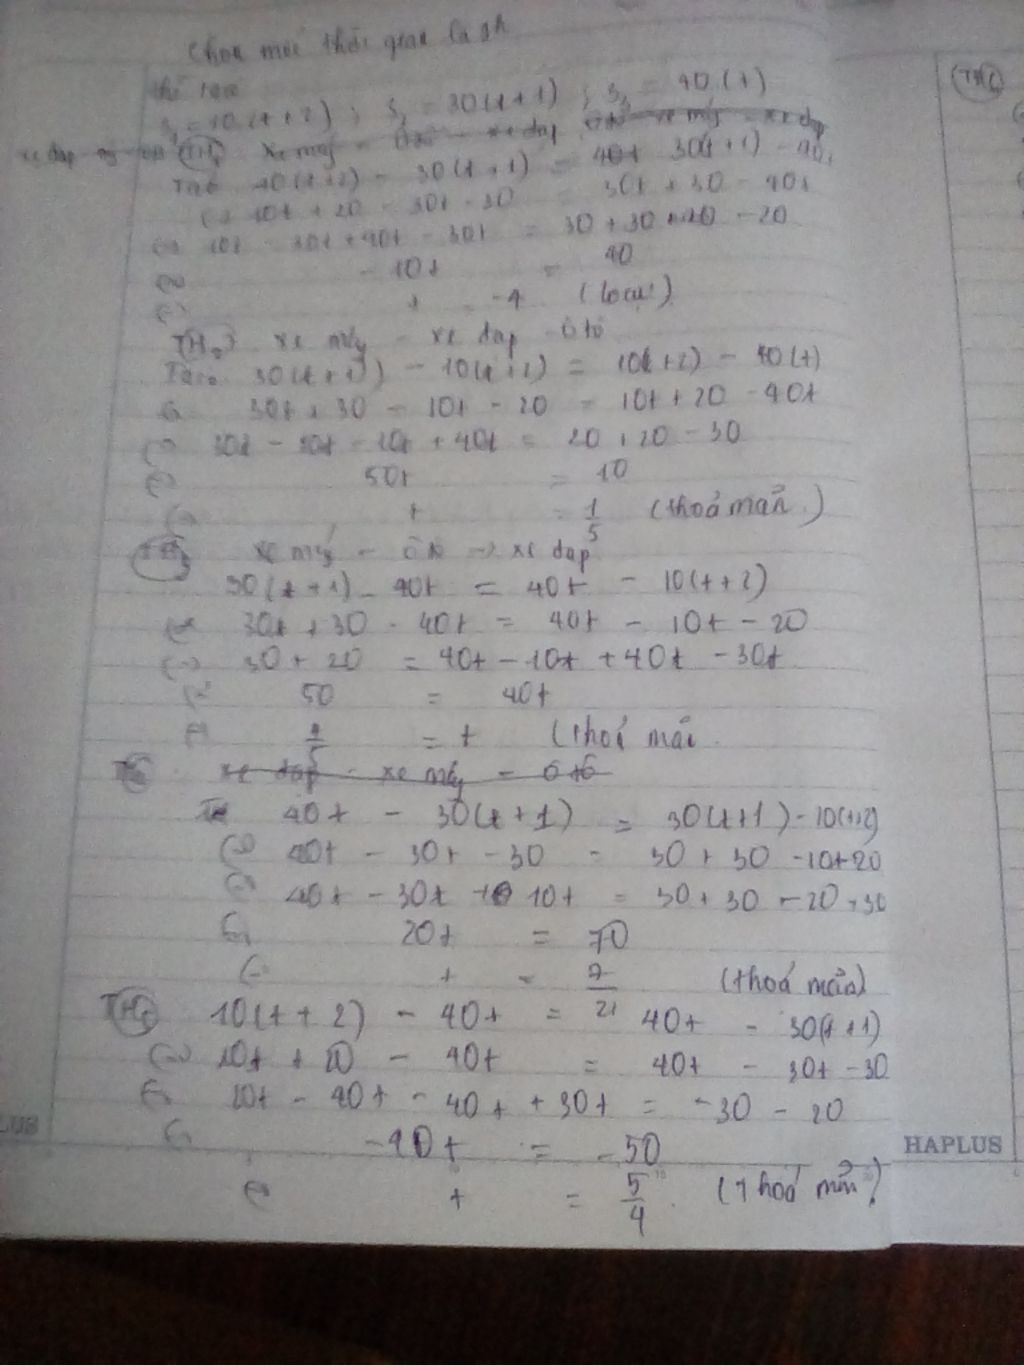 Chọn mốc thời gian là 9h
thì ta có
S₁ = 10(t+2) ; S₂ = 30(t+1) ; S₃ = 40(t)
xe đạp TH₁ xe máy xe đạp xe máy - xe đạp
Ta có 10(t+2) - 30(t+1) = 40t 30(t+1) - 40t
(=) 10t + 20 - 30t - 30 = 30t + 30 - 40t
(=) 10t - 30t + 40t - 30t = 30 + 30 - 20
(=) - 10t = 40
(=) t = -4 (loại)
TH₂ xe máy - xe đạp - ôtô
Ta có 30(t+1) - 10(t+2) = 10(t+2) - 40(t)
(=) 30t + 30 - 10t - 20 = 10t + 20 - 40t
(=) 30t - 10t - 10t + 40t = 20 + 20 - 30
(=) 50t = 10
(=) t = 1/5 (thoả mãn)
TH₃ xe máy - ôtô -> xe đạp
30(t+1) - 40t = 40t - 10(t+2)
(=) 30t + 30 - 40t = 40t - 10t - 20
(=) 30 + 20 = 40t - 10t + 40t - 30t
(=) 50 = 40t
(=) = t (thoả mãn
xe đạp - xe máy = ôtô
Ta 40t - 30(t+1) = 30(t+1) - 10(t+2)
(=) 40t - 30t - 30 = 30 + 30 - 10t 20
(=) 40t - 30t + 10t = 30 + 30 - 20 + 30
(=) 20t = 70
(=) t = 7/21 (thoả mãn)
TH₅ 10(t+2) - 40t = 40t - 30(t+1)
(=) 10t + 20 - 40t = 40t - 30t - 30
(=) 10t - 40t - 40t + 30t = -30 - 20
(=) -40t = -50
HAPLUS
(=) t = 5/4 (Thoả mãn)